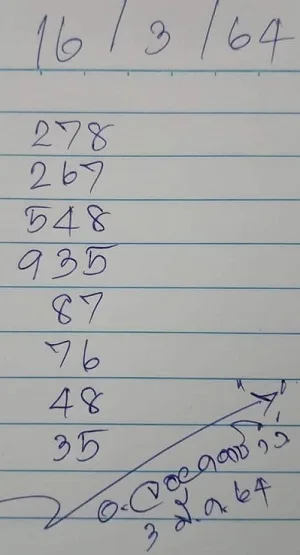 16 / 3 / 64
278
267
548
935
87
76
48
35
"7"
3 มี.ค. 64